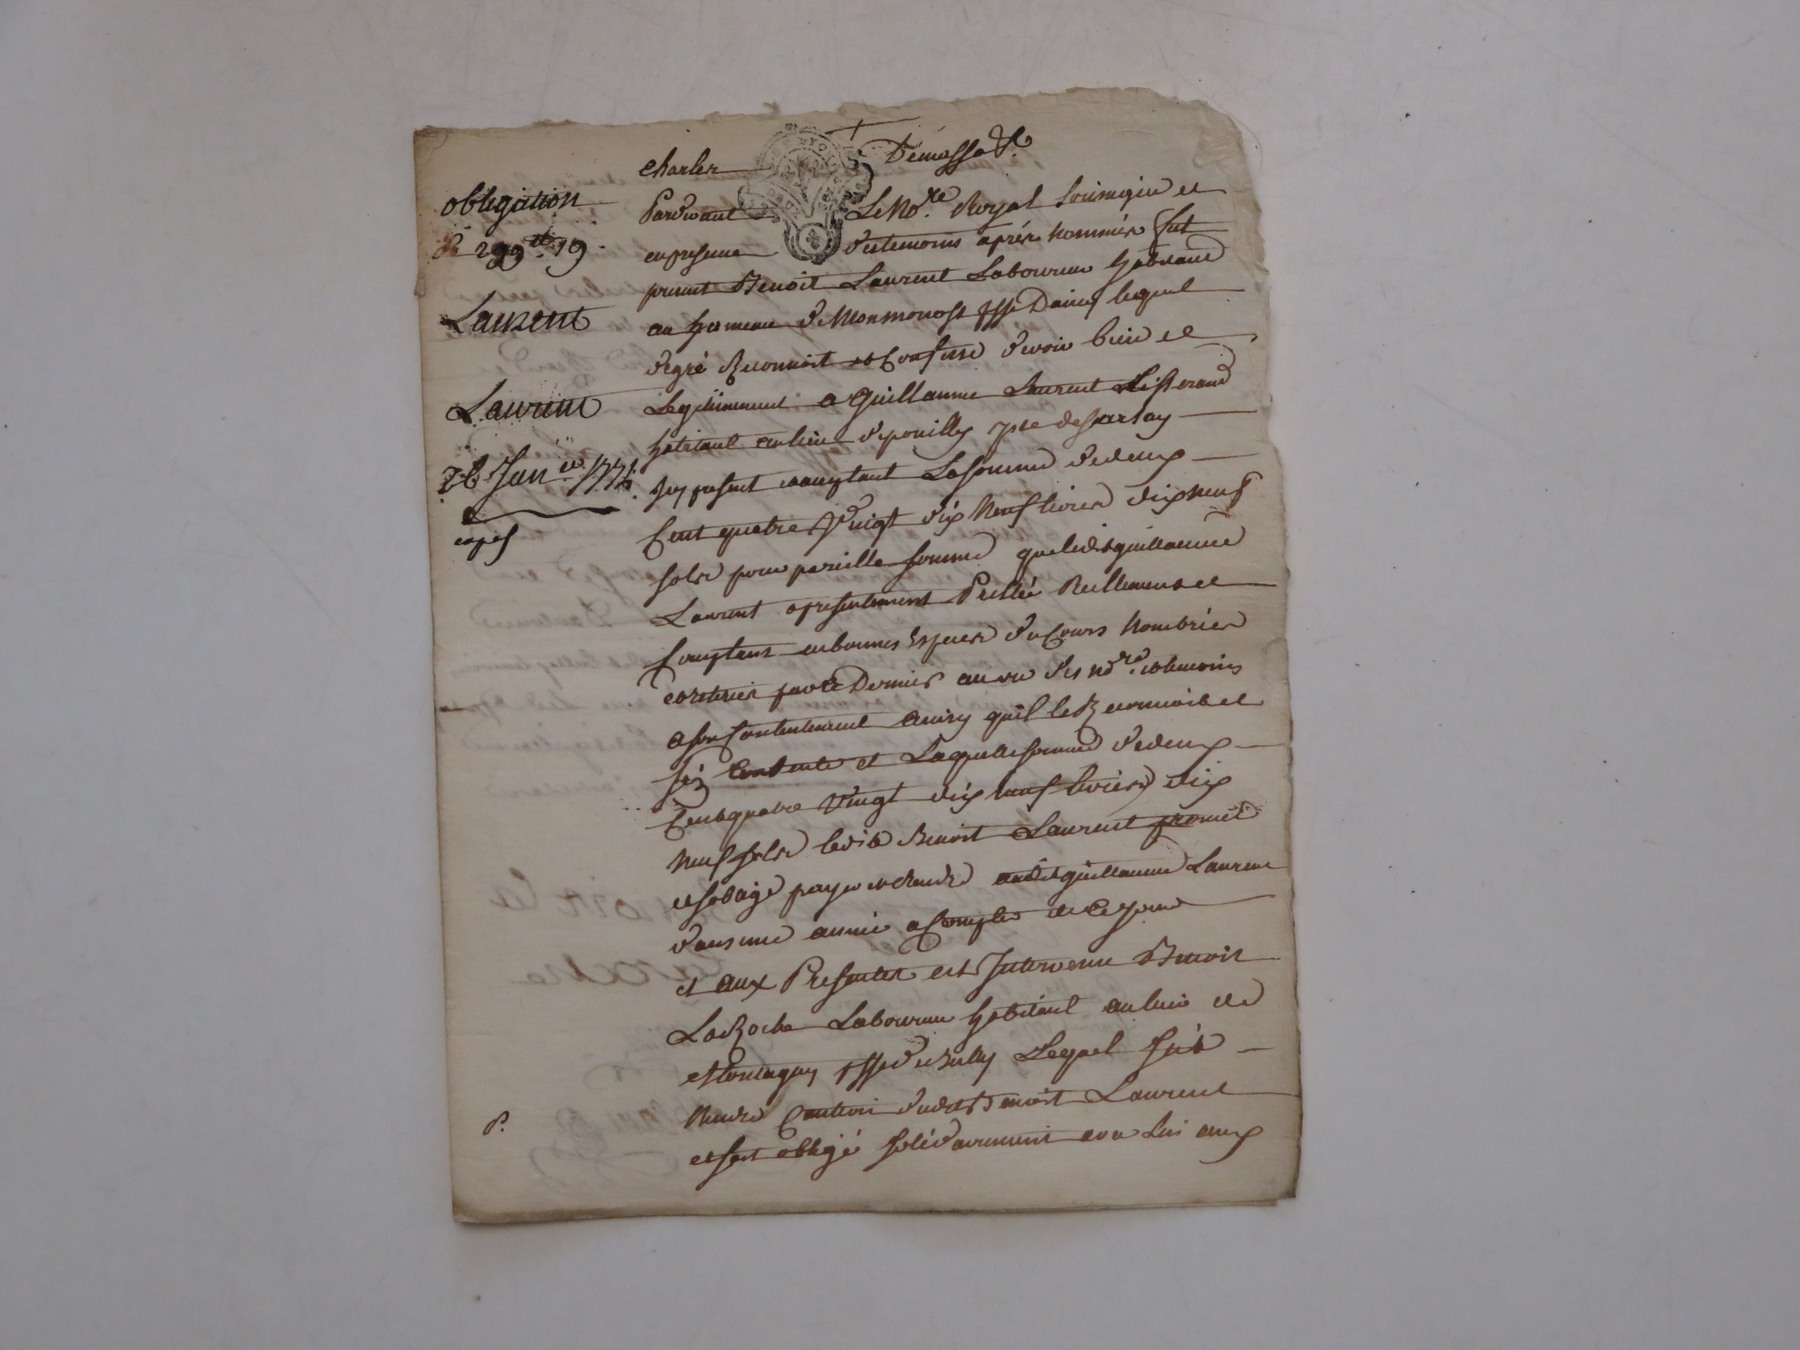 charles Demassos
obligation
de 299 tt 19
Laurent
Laurent
26 Janer 1774
expé
Pardevant Le Nore Royal Soussigné et
en presence des temoins après Nommés fut
present Benoit Laurent Laboureur habitant
au hameau de Monmonost psse Dancy lequel
de gré Reconnoit et Confesse devoir bien et
Legitimement a Guillaume Laurent tisserand
habitant au lieu de pouilly psse de Sarsay
icy present acceptant La somme de deux
Cent quatre Vingt dix Neuf livres dix neuf
sols pour pareille somme que ledit guillaume
Laurent a presentement Prêté Reellement et
Comptant en bonnes Especes du Cours Nombrées
et retirées par ce Dernier au vu des nores et temoins
a son Contentement ainsy qu'il le Reconnoit et
s'en Contente et Laquelle somme de deux
Cent quatre Vingt dix neuf livres dix
Neuf sols ledit Benoit Laurent promet
et s'oblige payer et rendre audit guillaume Laurent
dans une année a Compter de ce jour
et aux Presentes est Intervenu Benoit
LaRoche Laboureur habitant au lieu de
Montagny psse de Bully Lequel s'est
Rendu Caution dudit Benoit Laurent
et s'est obligé solidairement avec lui aux
P.